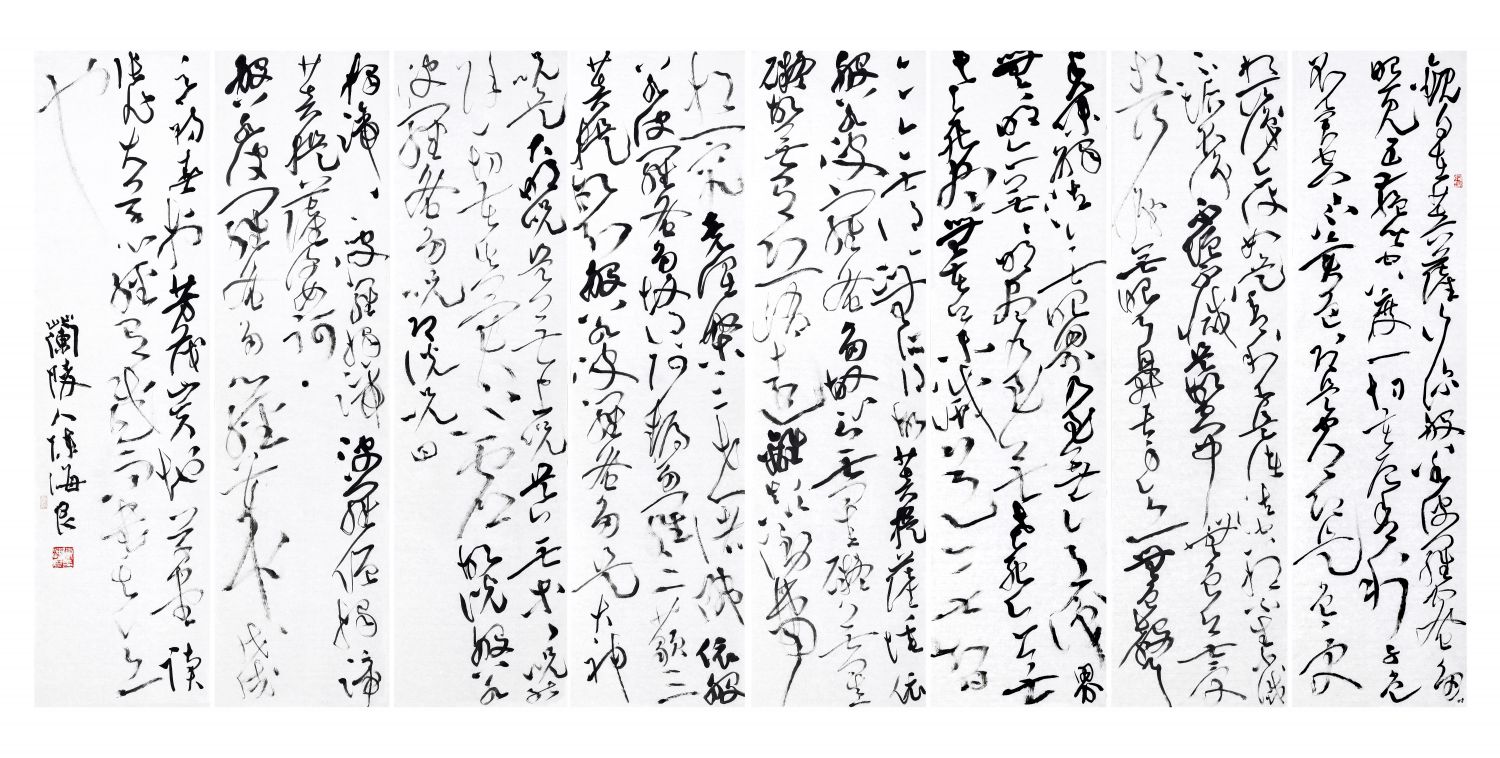 觀自在菩薩行深般若波羅蜜多時
照見五蘊皆空度一切苦厄舍利子色
不異空空不異色色即是空空即是色受
想行識亦復如是舍利子是諸法空相不生不滅
不垢不淨不增不減是故空中無色無受
想行識無眼耳鼻舌身意無色聲
香味觸法無眼界乃至無意識界
無無明亦無無明盡乃至無老死亦無
老死盡無苦集滅道無智
亦無得以無所得故菩提薩埵依
般若波羅蜜多故心無罣礙無罣
礙故無有恐怖遠離顛倒夢
想究竟涅槃三世諸佛依般
若波羅蜜多故得阿耨多羅三藐三
菩提故知般若波羅蜜多是大神
咒是大明咒是無上咒是無等等咒能
除一切苦真實不虛故說般若
波羅蜜多咒即說咒曰
揭諦揭諦波羅揭諦波羅僧揭諦
菩提薩婆訶
般若波羅蜜多心經 戊戌
陽春於芳茂山 讀
張旭大字心經有感而書
也
蘭陵人陳海良